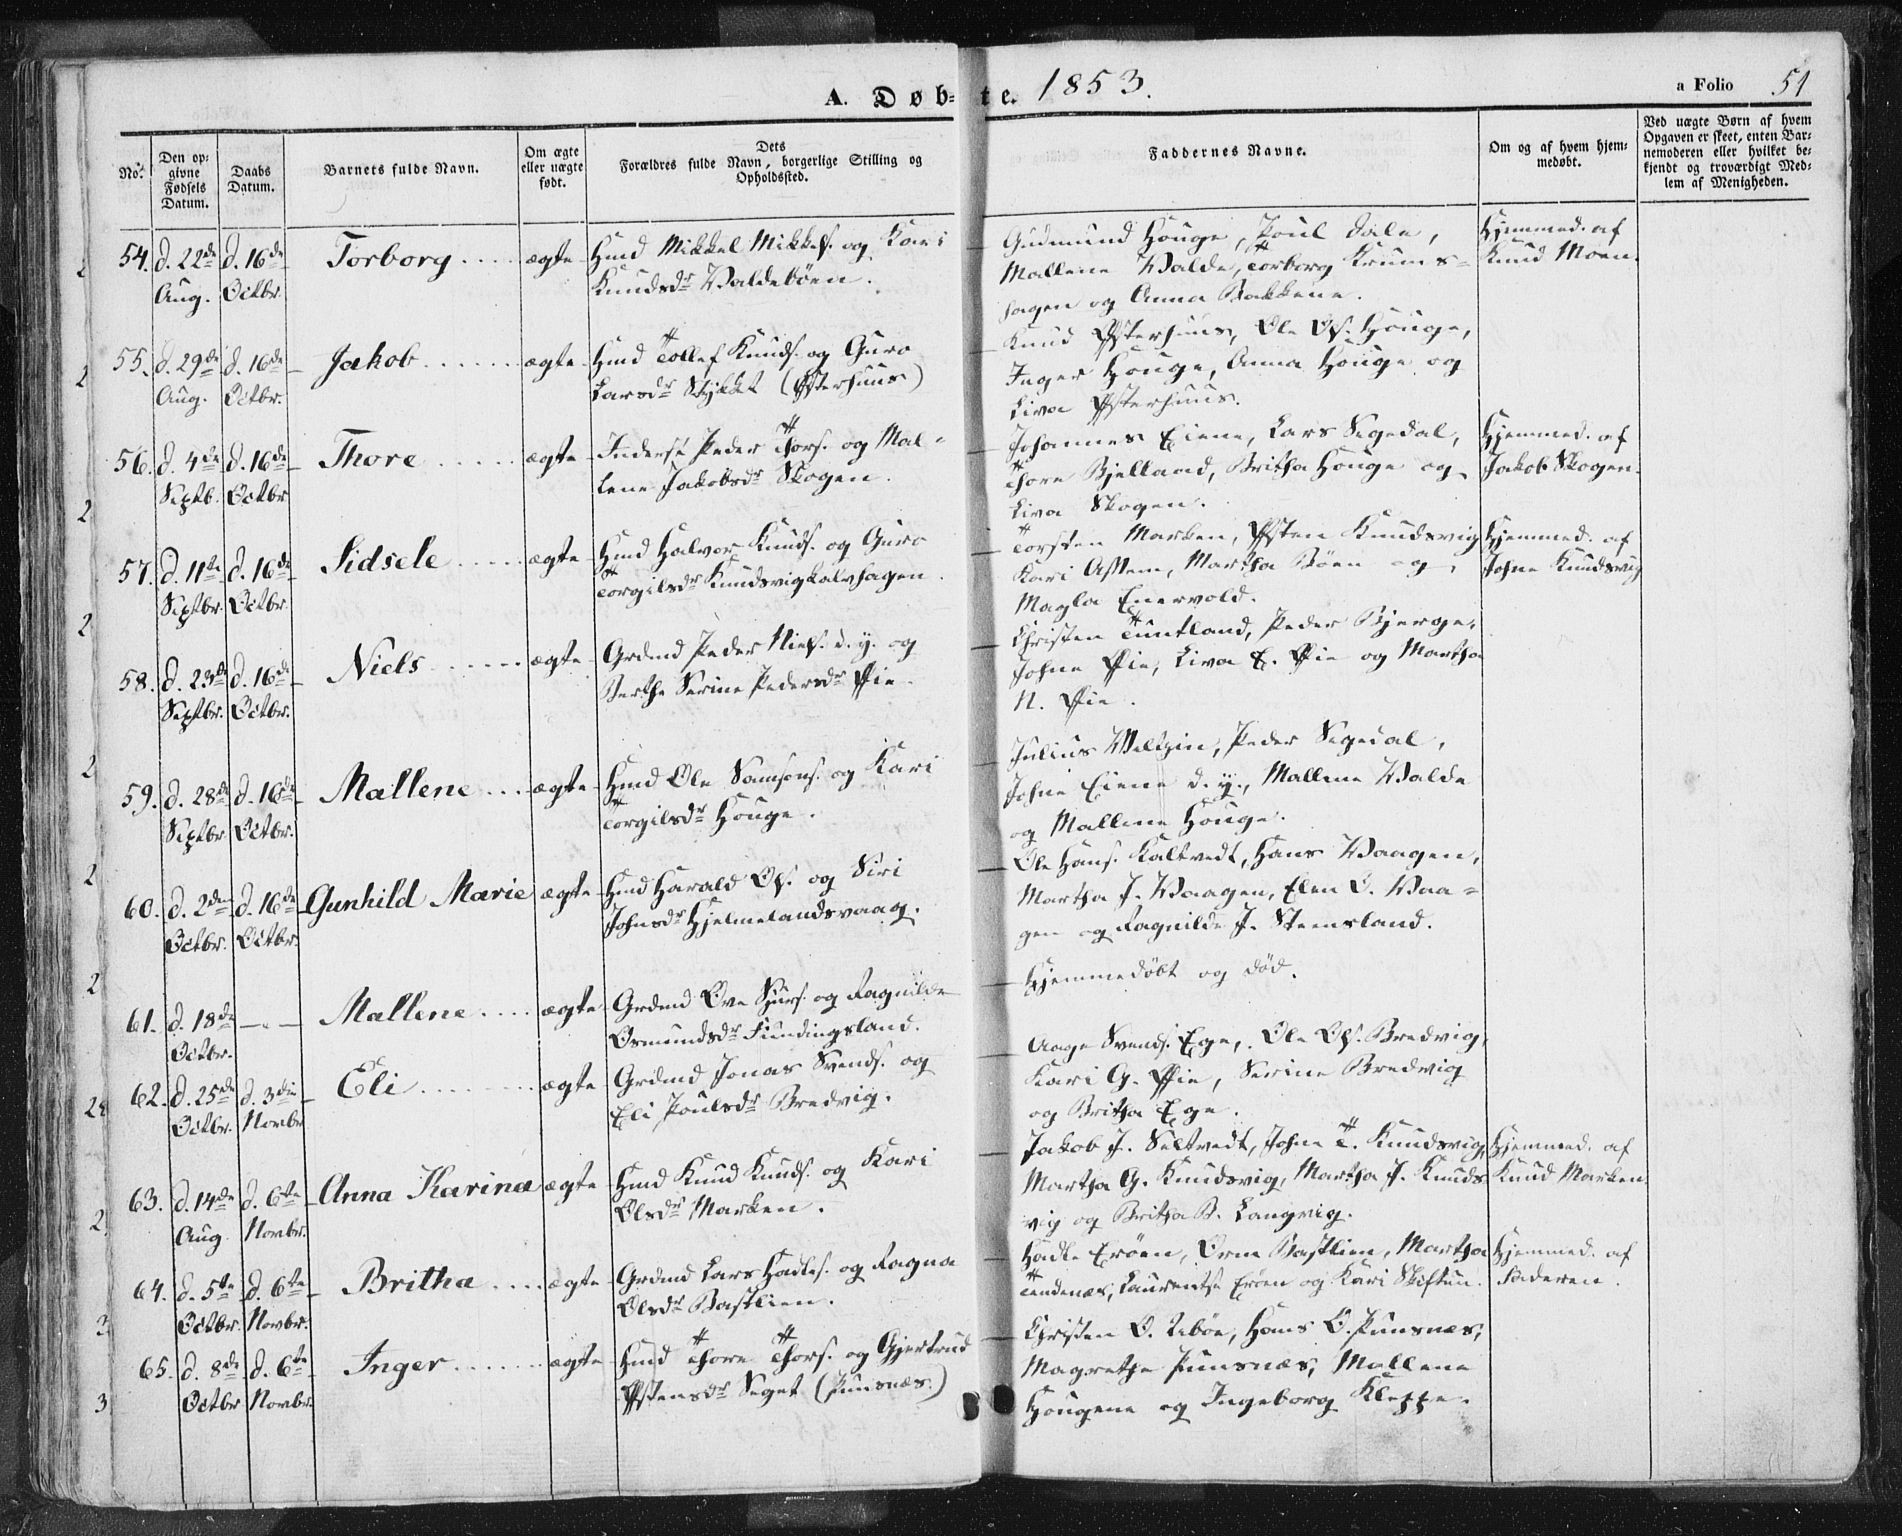 A. Døb=te. 1853.
a Folio 51
No.
Den op=
givne
Fødsels
Datum.
Daabs
Datum.
Barnets fulde Navn.
Om ægte
eller uægte
født.
Dets
Forældres fulde Navn, borgerlige Stilling og
Opholdssted.
Faddernes Navne.
Om og af hvem hjem=
medøbt.
Ved uægte Børn af hvem
Opgaven er skeet, enten Bar=
nemoderen eller hvilket be=
kjendt og troværdigt Med=
lem af Menigheden.
54. d. 22de Aug. d. 16de Octbr. Torborg ægte
Hmd Mikkel Mikkels. og Kari
Knudsdr Valdebøen.
Gudmund Houge, Poul Dale,
Mallene Valde, Torborg Krums=
hagen og Anna Bakkene.
Hjemmed. af
Knud Moen.
55. d. 29de Aug. d. 16de Octbr. Jakob ægte
Hmd Tollef Knuds. og Guro
Larsdr Stykket (Østerhuus)
Knud Østerhuus, Ole Ols. Houge,
Inger Houge, Anna Houge og
Liva Østerhuus.
56. d. 4de Septb. d. 16de Octbr Thore ægte
Inderst Peder Thors. og Mal=
lene Jakobsdr Skogen.
Johannes Eiene, Lars Segedal,
Thore Bjelland, Britha Houge og
Liva Skogen.
Hjemmed. af
Jakob Skogen.
57. d. 11te Septbr. d. 16de Octbr. Sidsele ægte
Hmd Halvor Knuds. og Guro
Torgilsdr Knudsvigkalvhagen.
Torsten Marken, Østen Knudsvig
Kari Østem, Martha Bøen og
Magla Enervold.
Hjemmed. af
Johne Knudsvig
58. d. 23de Septbr. d. 16de Octbr. Niels ægte
Grdmd Peder Niels. d. y. og
Berthe Serine Pedersdr Øie.
Christen Tuntland, Peder Bjerge,
Johne Øie, Liva E. Øie og Martha
N. Øie.
59. d. 28de Septbr d. 16de Octbr. Mallene ægte
Hmd Ole Samsons. og Kari
Torgilsdr Houge.
Julius Weltzin, Peder Segedal,
Johne Eiene d. y., Mallene Valde
og Mallene Houge.
60. d. 2den Octbr. d. 16de Octbr. Gunhild Marie ægte
Hmd Harald Ols. og Siri
Johnsdr Hjelmelandsvaag.
Ole Hans. Kaltvedt, Hans Vaagen,
Martha J. Vaagen, Elen O. Vaa=
gen og Ragnilde J. Steensland.
61. d. 18de Octbr. — " — Mallene ægte
Grdmd Ove Sjurs. og Ragnilde
Osmundsdr Fundingsland.
Hjemmedøbt og død.
62. d. 25de Octbr. d. 3die Novbr Eli ægte
Grdmd Jonas Svends. og
Eli Poulsdr Bredvig.
Aage Svends. Ege, Ole Ols. Bredvig,
Kari G. Øie, Serine Bredvig
og Britha Ege.
63. d. 14de Aug. d. 6te Novbr. Anna Karina ægte
Hmd Knud Knuds. og Kari
Olsdr Marken.
Jakob J. Seltvedt, Johne T. Knudsvig,
Martha G. Knudsvig, Martha J. Knuds
vig og Britha B. Langvig.
Hjemmed. af
Knud Marken
64. d. 5te Octbr. d. 6te Novbr. Britha ægte
Grdmd Lars Hadles. og Ragna
Olsdr Bastlien.
Hadle Erøen, Orm Bastlien, Martha
Tendenæs, Laurentse Erøen og Kari Skiftun.
Hjemmed. af
Faderen.
65. d. 8de Octbr d. 6te Novbr. Inger ægte
Hmd Thore Thors. og Gjertrud
Østensdr Seget (Punsnæs.)
Christen O. Vebøe, Hans O. Punsnæs,
Magrethe Punsnæs, Mallene
Hougene og Ingeborg Kleppe.